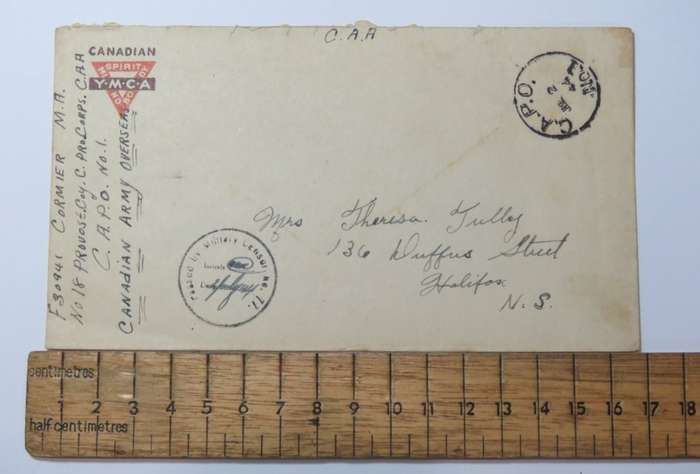 C.A.A
CANADIAN
SPIRIT
MIND
BODY
Y·M·C·A
F30941 CORMIER M.A.
No 18 PROVOST. COY. C. PRO CORPS. C.A.A
C.A.P.O. No.1.
CANADIAN ARMY OVERSEAS
C.A.P.O.
NO. 1
2
44
Passed by Military Censor No. 71.
Mrs Theresa Tully
136 Duffus Street
Halifax
N.S.
centimetres
1 2 3 4 5 6 7 8 9 10 11 12 13 14 15 16 17 18
half centimetres